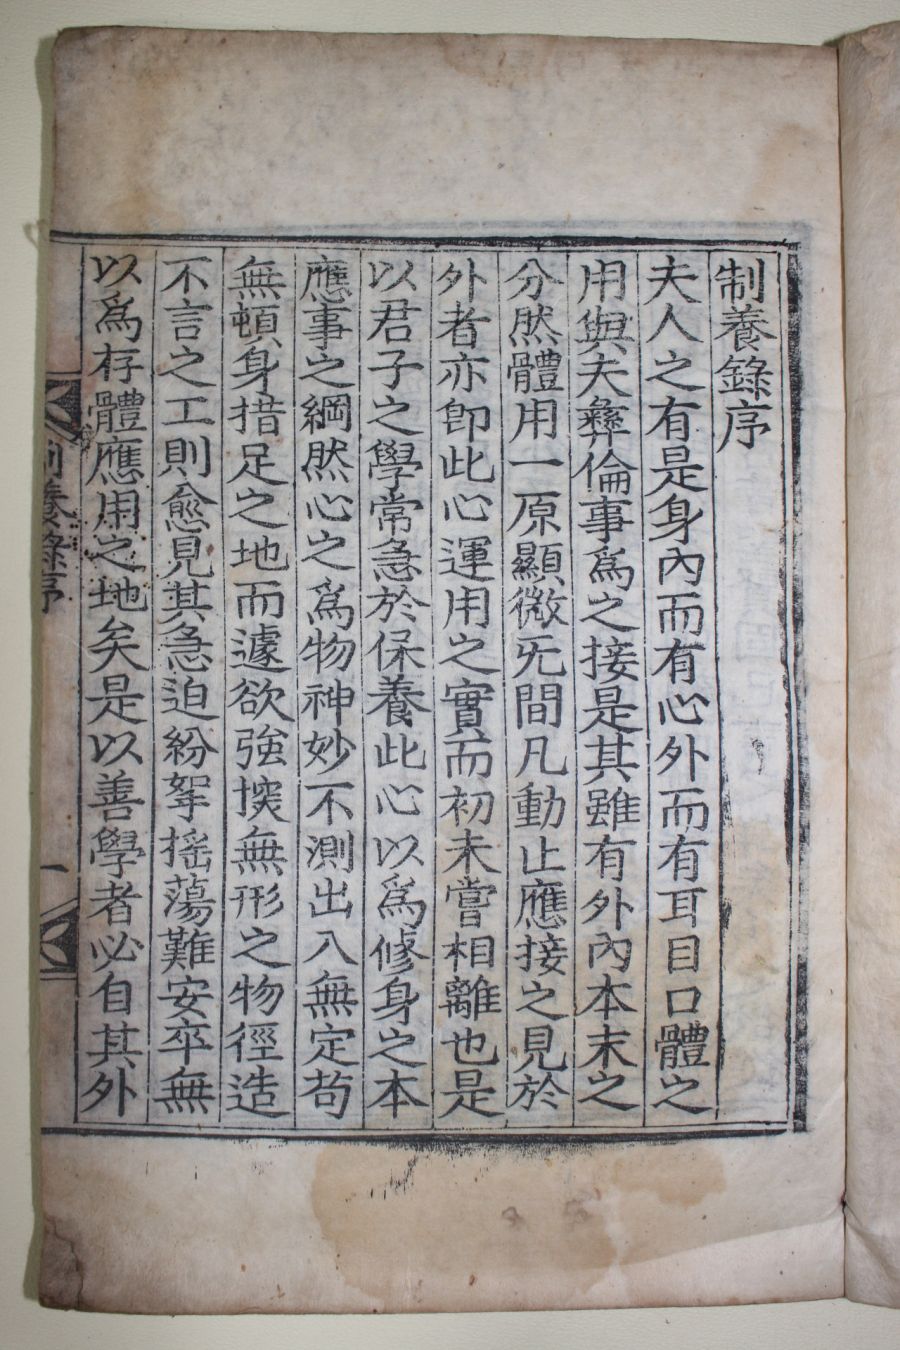 制養錄序
夫人之有是身內而有心外而有耳目口體之
用與夫彝倫事爲之接是其雖有外內本末之
分然體用一原顯微无間凡動止應接之見於
外者亦卽此心運用之實而初未嘗相離也是
以君子之學常急於保養此心以爲修身之本
應事之綱然心之爲物神妙不測出入無定苟
無頓身措足之地而遽欲強揬無形之物徑造
不言之工則愈見其急迫紛挐搖蕩難安卒無
以爲存體應用之地矣是以善學者必自其外
制養錄序
一